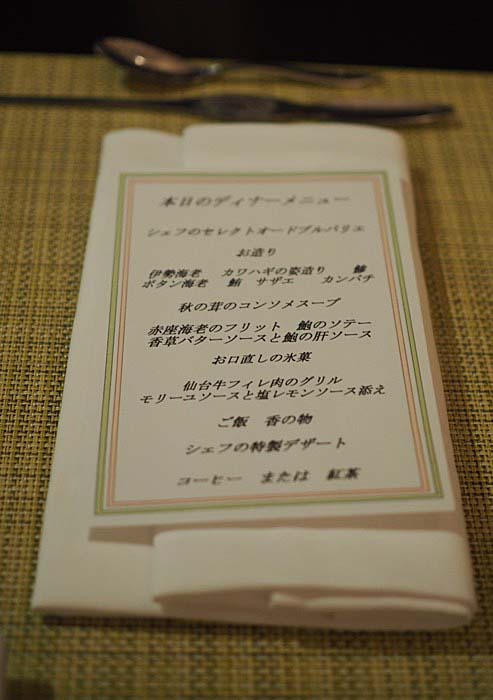 本日のディナーメニュー
シェフのセレクトオードブルバリエ
お造り
伊勢海老 カワハギの姿造り 鯵
ボタン海老 鮪 サザエ カンパチ
秋の茸のコンソメスープ
赤座海老のフリット 鮑のソテー
香草バターソースと鮑の肝ソース
お口直しの氷菓
仙台牛フィレ肉のグリル
モリーユソースと塩レモンソース添え
ご飯 香の物
シェフの特製デザート
コーヒー または 紅茶